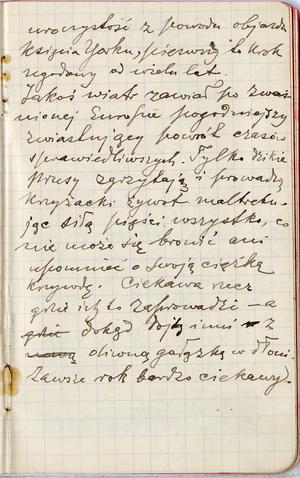 uroczystość z powodu objazdu
Księcia Yorku, pierwszy to krok
ugodowy od wielu lat.
Jakoś wiatr zawiał po zwaś-
nionej Europie pogodniejszy
zwiastujący powrót czasów
sprawiedliwszych. Tylko dzikie
Prusy zgrzytają i prowadzą
Krzyżacki żywot maltretu-
jąc siłą pięści wszystko, co
nie może się bronić ani
upomnieć o swoją ciężką
krzywdę. Ciekawa rzecz
gdzie ich to zaprowadzi – a
gdzie dokąd dojdą inni – z
oliwną gałązką w dłoni.
Zawsze rok bardzo ciekawy.